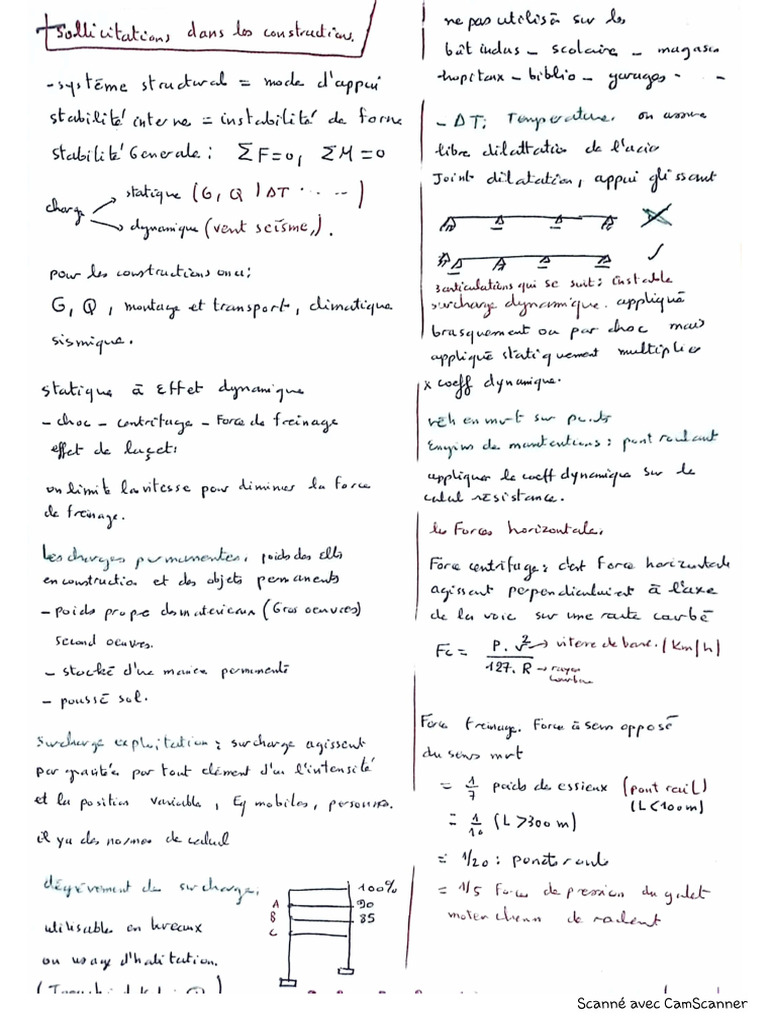 Sollicitations dans les constructions.
- système structural = mode d'appui
stabilité interne = instabilité de forme
stabilité Generale : ΣF=0, ΣM=0
charge
statique (G, Q, ΔT ... --)
dynamique (vent seïsme,).
pour les constructions on a ;
G, Q, montage et transport, climatique
sismique.
statique à Effet dynamique
- choc - centrifuge - Force de freinage
effet de laçet:
on limite la vitesse pour diminuer la force
de freinage.
Les charges permanentes, poids des Elts
en construction et des objets permanents
- poids propre des matériaux (Gros oeuvres)
second oeuvres.
- stocké d'une manière permanente
- poussé sol.
Surcharge exploitation : surcharge agissent
par gravité par tout élément d'un l'intensité
et la position variable, Eq mobiles, personnes.
il ya des normes de calcul
dégrèvement de surcharge,
utilisable en bureaux
ou usage d'habitation.
100%
A 90
B 85
C
ne pas utilisé sur les
bât indus - scolaire - magasin
hopitaux - biblio - garages - - -
- ΔT: Temperature. on assure
libre dilattation de l'acier
Joint dilatation, appui glissant
3 articulations qui se suit : instable
surcharge dynamique. appliqué
brasquement ou par choc mais
appliqué statiquement multiplier
x coeff dynamique.
véh en mvt sur ponts
Engins de manutentions : pont roulant
appliquer le coeff dynamique sur le
calcul résistance.
les Forces horizontales,
Force centrifuge : c'est force horizontale
agissent perpendiculairent à l'axe
de la voie sur une route courbé
Fc = P. v² / 127. R
→ vitesse de base. (Km/h)
→ rayon courbure
Force freinage. Force à sens opposé
du sens mvt
= 1/7 poids de essieux (pont rail)
(L<100m)
= 1/10 (L>300m)
= 1/20 : pont route
= 1/5 Force de pression du galet
Scanné avec CamScanner